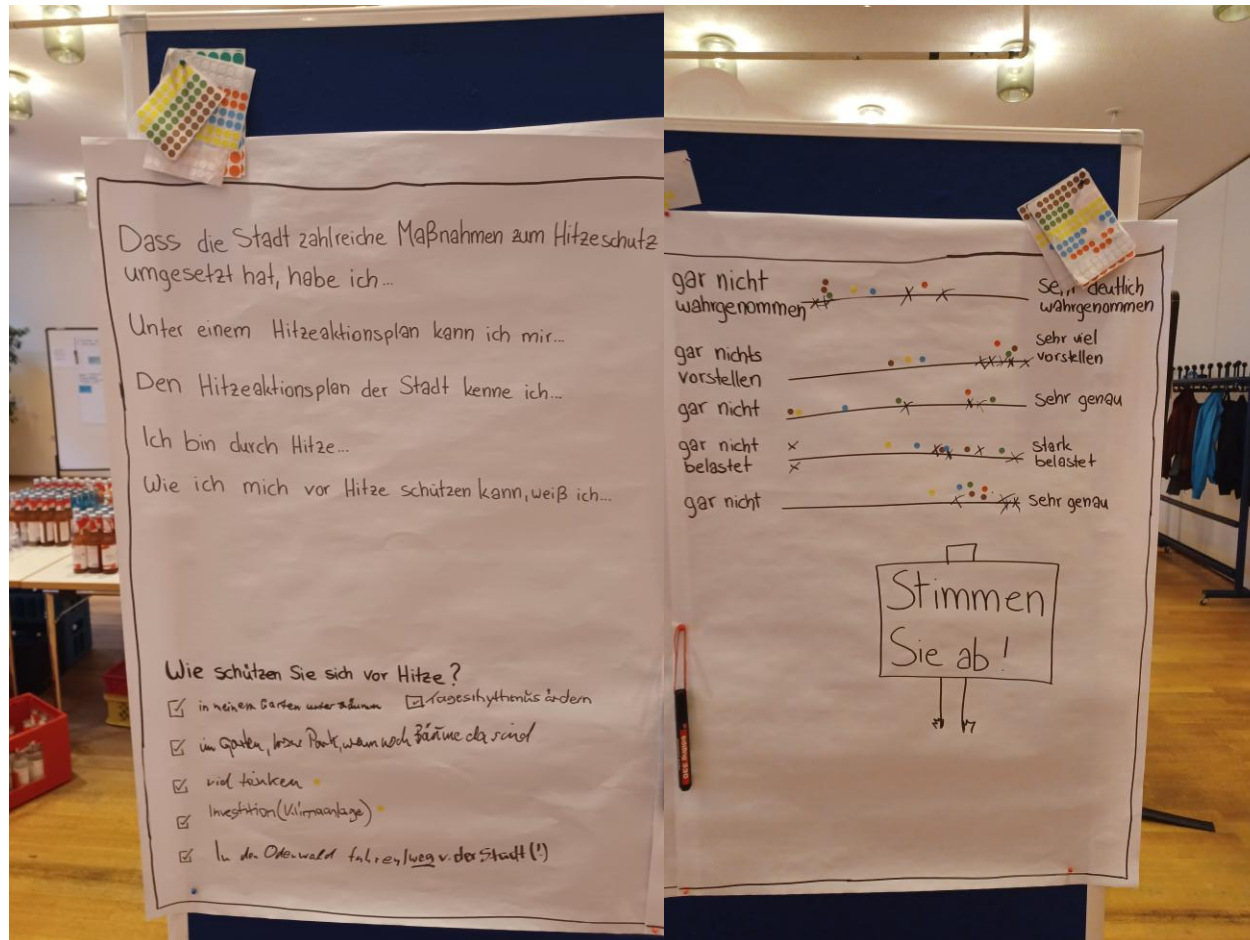 Dass die Stadt zahlreiche Maßnahmen zum Hitzeschutz
umgesetzt hat, habe ich...
Unter einem Hitzeaktionsplan kann ich mir...
Den Hitzeaktionsplan der Stadt kenne ich...
Ich bin durch Hitze...
Wie ich mich vor Hitze schützen kann, weiß ich...
Wie schützen Sie sich vor Hitze?
in meinem Garten unter Bäumen
Tagesrhythmus ändern
im Garten, Park, wenn noch Bäume da sind
viel trinken
Investition (Klimaanlage)
In den Odenwald fahren/weg v. der Stadt (!)
gar nicht
wahrgenommen
sehr deutlich
wahrgenommen
gar nichts
vorstellen
sehr viel
vorstellen
gar nicht
sehr genau
gar nicht
belastet
stark
belastet
gar nicht
sehr genau
Stimmen
Sie ab!